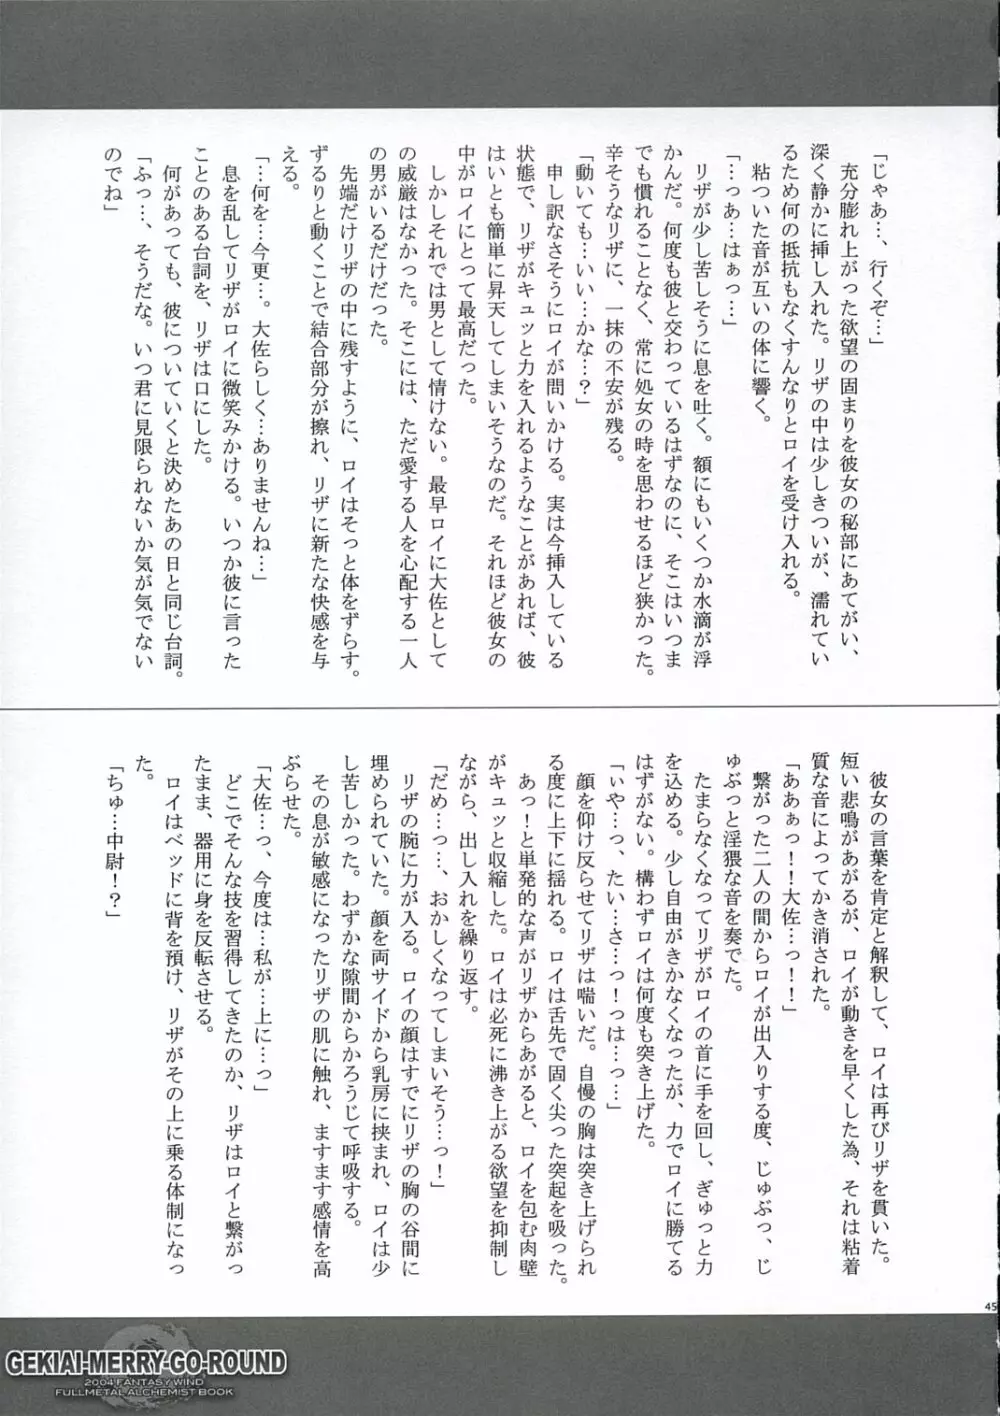 「じゃあ…、行くぞ…」
　充分膨れ上がった欲望の固まりを彼女の秘部にあてがい、
深く静かに挿し入れた。リザの中は少しきついが、濡れてい
るため何の抵抗もなくすんなりとロイを受け入れる。
　粘ついた音が互いの体に響く。
「…っあ…はぁっ…」
　リザが少し苦しそうに息を吐く。額にもいくつか水滴が浮
かんだ。何度も彼と交わっているはずなのに、そこはいつま
でも慣れることなく、常に処女の時を思わせるほど狭かった。
辛そうなリザに、一抹の不安が残る。
「動いても…いい…かな…？」
　申し訳なさそうにロイが問いかける。実は今挿入している
状態で、リザがキュッと力を入れるようなことがあれば、彼
はいとも簡単に昇天してしまいそうなのだ。それほど彼女の
中がロイにとって最高だった。
　しかしそれでは男として情けない。最早ロイに大佐として
の威厳はなかった。そこには、ただ愛する人を心配する一人
の男がいるだけだった。
　先端だけリザの中に残すように、ロイはそっと体をずらす。
ずるりと動くことで結合部分が擦れ、リザに新たな快感を与
える。
「…何を…今更…。大佐らしく…ありませんね…」
　息を乱してリザがロイに微笑みかける。いつか彼に言った
ことのある台詞を、リザは口にした。
　何があっても、彼についていくと決めたあの日と同じ台詞。
「ふっ…、そうだな。いつ君に見限られないか気が気でない
のでね」
　彼女の言葉を肯定と解釈して、ロイは再びリザを貫いた。
短い悲鳴があがるが、ロイが動きを早くした為、それは粘着
質な音によってかき消された。
「ああぁっ！！大佐…っ！！」
　繋がった二人の間からロイが出入りする度、じゅぶっ、じ
ゅぶっと淫猥な音を奏でた。
　たまらなくなってリザがロイの首に手を回し、ぎゅっと力
を込める。少し自由がきかなくなったが、力でロイに勝てる
はずがない。構わずロイは何度も突き上げた。
「いや…っ、たい…さ…っ！っは…っ…」
　顔を仰け反らせてリザは喘いだ。自慢の胸は突き上げられ
る度に上下に揺れる。ロイは舌先で固く尖った突起を吸った。
　あっ！と単発的な声がリザからあがると、ロイを包む肉壁
がキュッと収縮した。ロイは必死に沸き上がる欲望を抑制し
ながら、出し入れを繰り返す。
「だめ…っ…、おかしくなってしまいそう…っ！」
　リザの腕に力が入る。ロイの顔はすでにリザの胸の谷間に
埋められていた。顔を両サイドから乳房に挟まれ、ロイは少
し苦しかった。わずかな隙間からかろうじて呼吸する。
　その息が敏感になったリザの肌に触れ、ますます感情を高
ぶらせた。
「大佐…っ、今度は…私が…上に…っ」
　どこでそんな技を習得してきたのか、リザはロイと繋がっ
たまま、器用に身を反転させる。
　ロイはベッドに背を預け、リザがその上に乗る体制になっ
た。
「ちゅ…中尉！？」
45
GEKIAI-MERRY-GO-ROUND
2004 FANTASY WIND
FULLMETAL ALCHEMIST BOOK